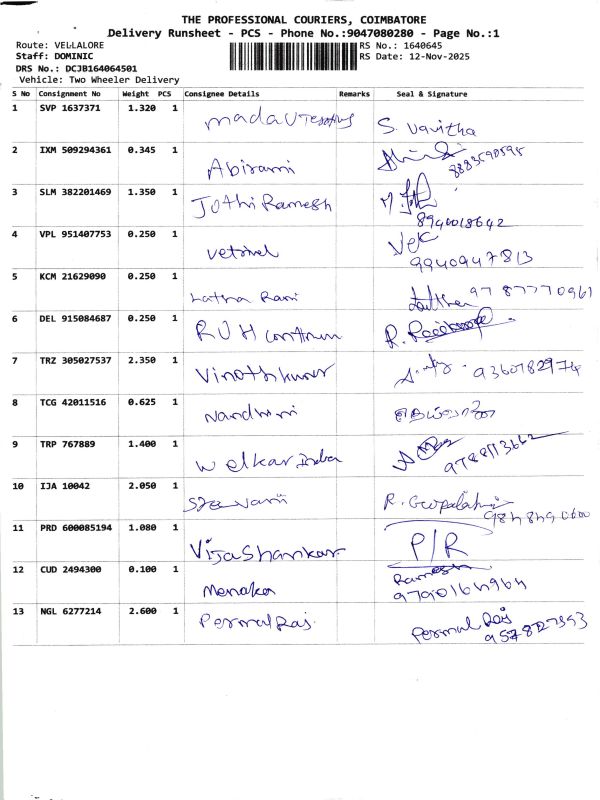 THE PROFESSIONAL COURIERS, COIMBATORE
Delivery Runsheet - PCS - Phone No.:9047080280 - Page No.:1
Route: VELLALORE
RS No.: 1640645
Staff: DOMINIC
RS Date: 12-Nov-2025
DRS No.: DCJB164064501
Vehicle: Two Wheeler Delivery
S No Consignment No Weight PCS Consignee Details Remarks Seal & Signature
1 SVP 1637371 1.320 1
S. Vavitha
2 IXM 509294361 0.345 1
Abirami
3 SLM 382201469 1.350 1
Jothi Ramesh
8940018642
4 VPL 951407753 0.250 1
Vetrivel
9940947813
5 KCM 21629090 0.250 1
Latha Rani 9787770961
6 DEL 915084687 0.250 1
R.
7 TRZ 305027537 2.350 1
Vinothkumar 9360182974
8 TCG 42011516 0.625 1
Nandhini
9 TRP 767889 1.400 1
10 IJA 10042 2.050 1
R.
11 PRD 600085194 1.080 1
Vijashankar P/R
12 CUD 2494300 0.100 1
Menaka Ramesh
13 NGL 6277214 2.600 1
PermalRaj. Permal Raj